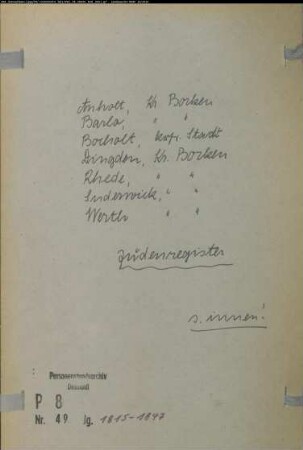 Anholt, Kr. Borken
Barlo, " "
Bocholt, krfr. Stadt
Dingden, Kr. Borken
Rhede, " "
Suderwick, " "
Werth " "
Judenregister
s. innen!
Personenstandsarchiv
P 8
Nr. 49 Jg. 1815-1847